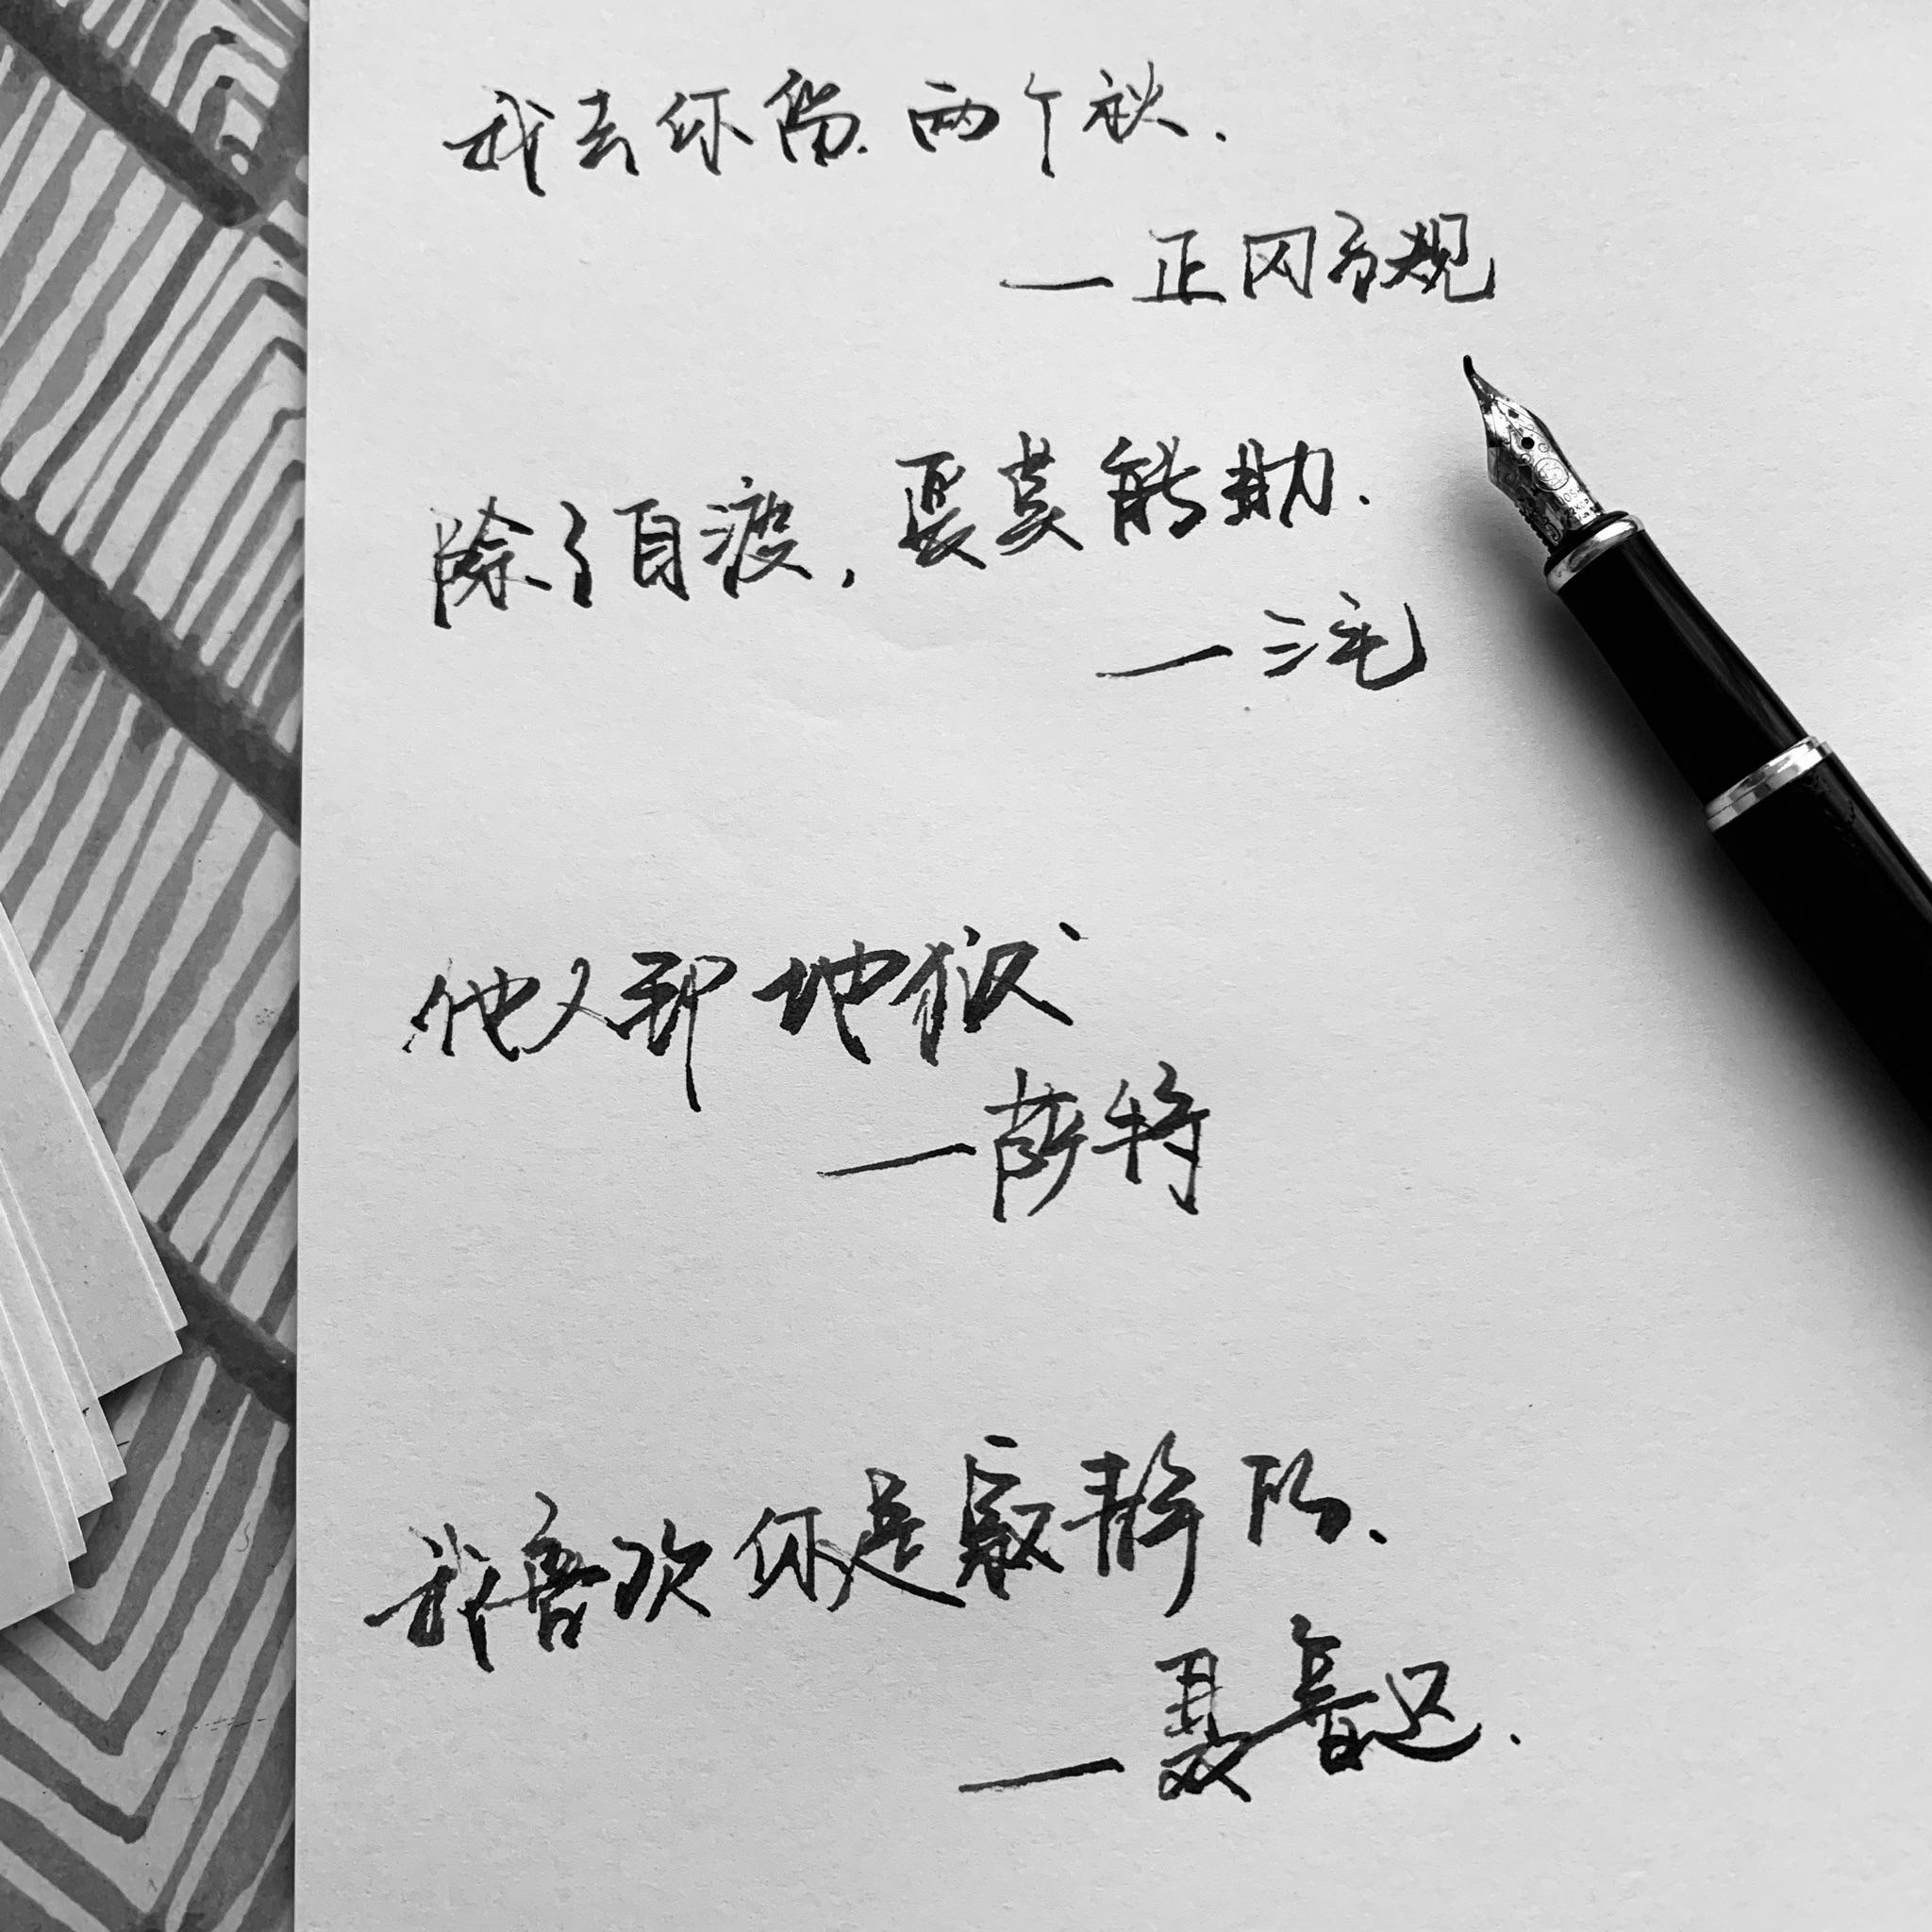 我去你留.两个秋.
—正冈子规
除了自渡,爱莫能助.
—三毛
他人即地狱
—萨特
我喜欢你是寂静的.
—聂鲁达.